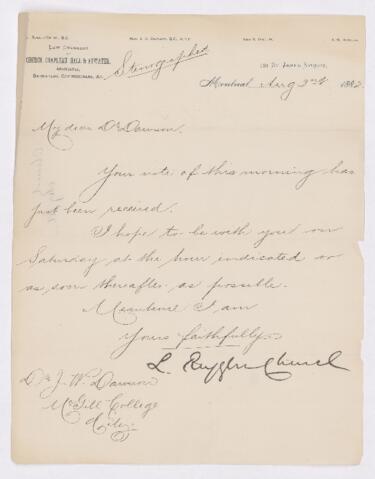 Law Chambers
of
Church, Chapleau Hall & Atwater,
Advocates,
Barristers, Commissioners, &c.
Stenographed
131 St. James Street,
Montreal, Aug 3rd 1882
My dear Dr Dawson.
Your note of this morning has
just been received.
I hope to be with you on
Saturday at the hour indicated or
as soon thereafter as possible.
Meantime I am
Yours faithfully
L. Ruggles Church
Dr J. W. Dawson
McGill College
City